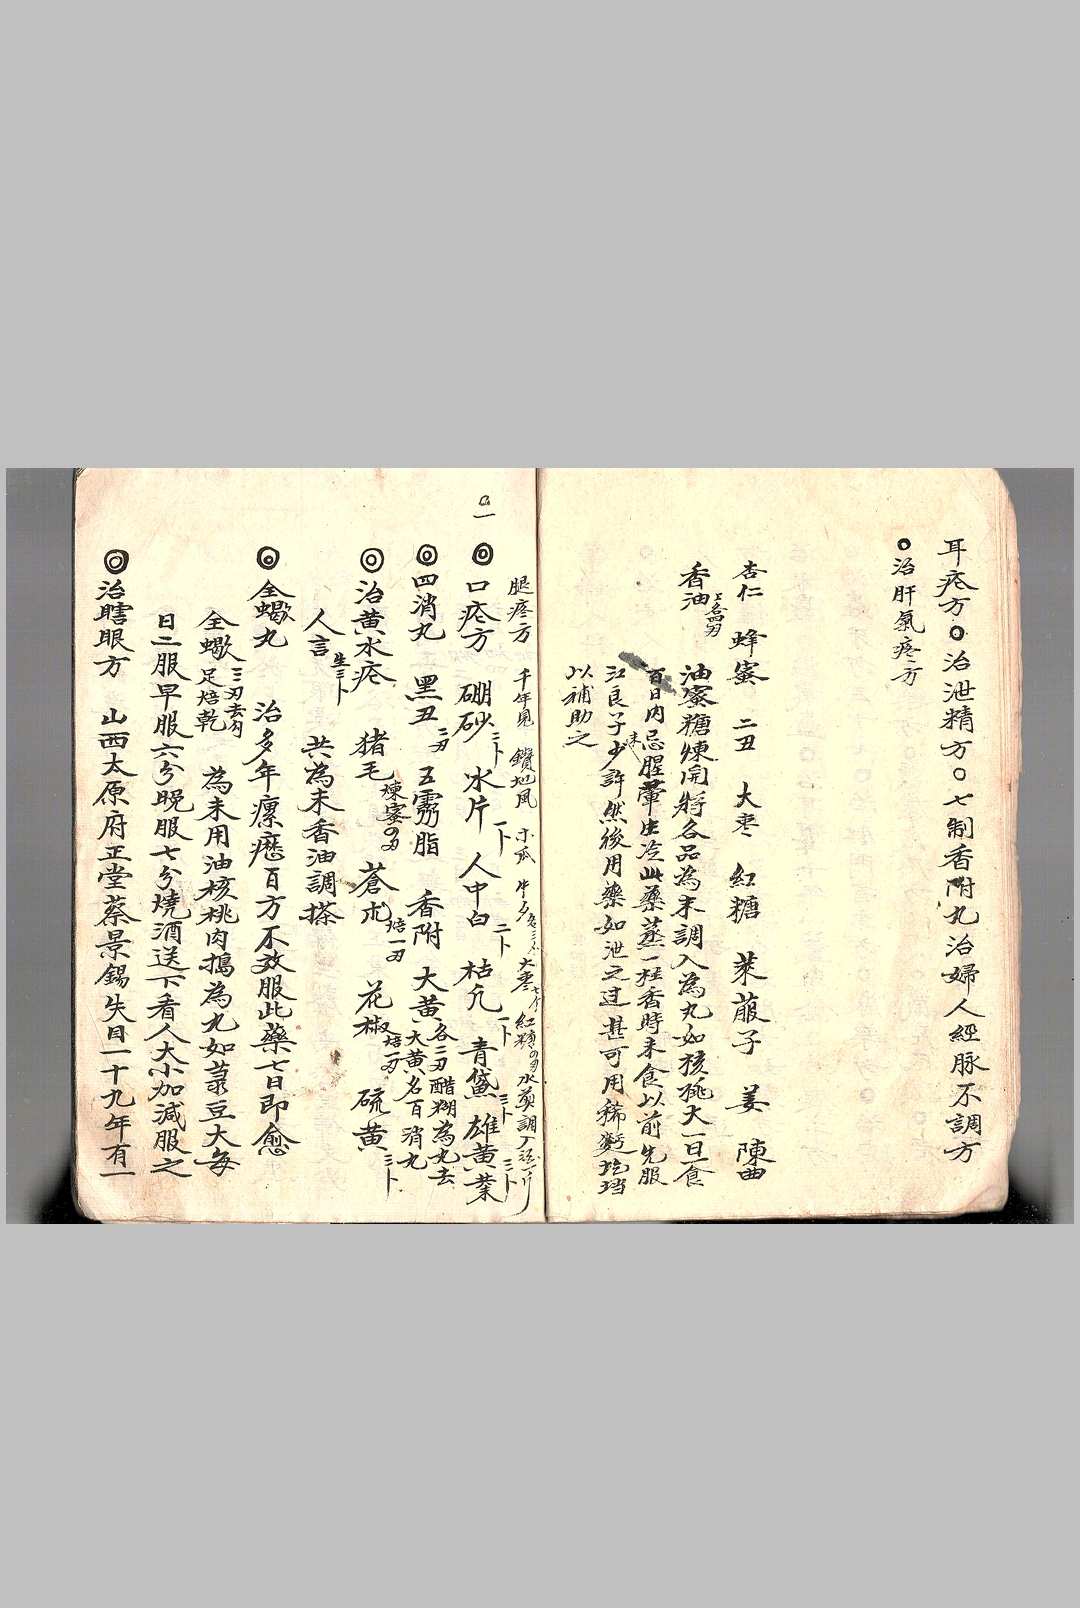 耳疮方◎治泄精方○七制香附丸治婦人經脉不調方
◎治肝氣疼方
杏仁 蜂蜜 二丑 大枣 紅糖 萊菔子 姜 陳曲
香油 油蜜糖煉開將各品為末調入為丸如核桃大一日一食
百日內忌腥葷生冷此藥蒸一柱香時未食以前先服
江良子末少許然後用藥如泄之过甚可用稀麫圪垱
以補助之
腿疼方 千年見 鑽地風 木瓜 牛夕 大枣 紅糖 水煎調
◎口疮方 硼砂三卜 冰片一卜 人中白二卜 枯凡一卜 青黛三卜 雄黄三卜 葉
◎四消丸 黑丑二刃 五靈脂 香附 大黄各二刃醋糊為丸去
大黄名百消丸
◎治黄水疮 猪毛 煉蜜 蒼朮焙一刃 花椒焙一刃 硫黄三卜
人言生三卜 共為末香油調搽
◎全蠍丸 治多年瘰癧百方不效服此藥七日即愈
全蠍三刃去勾足焙乾 為末用油核桃肉搗為丸如菉豆大每
日二服早服六分晚服七分燒酒送下看人大小加減服之
◎治瞎眼方 山西太原府正堂蔡景錫失目一十九年有一